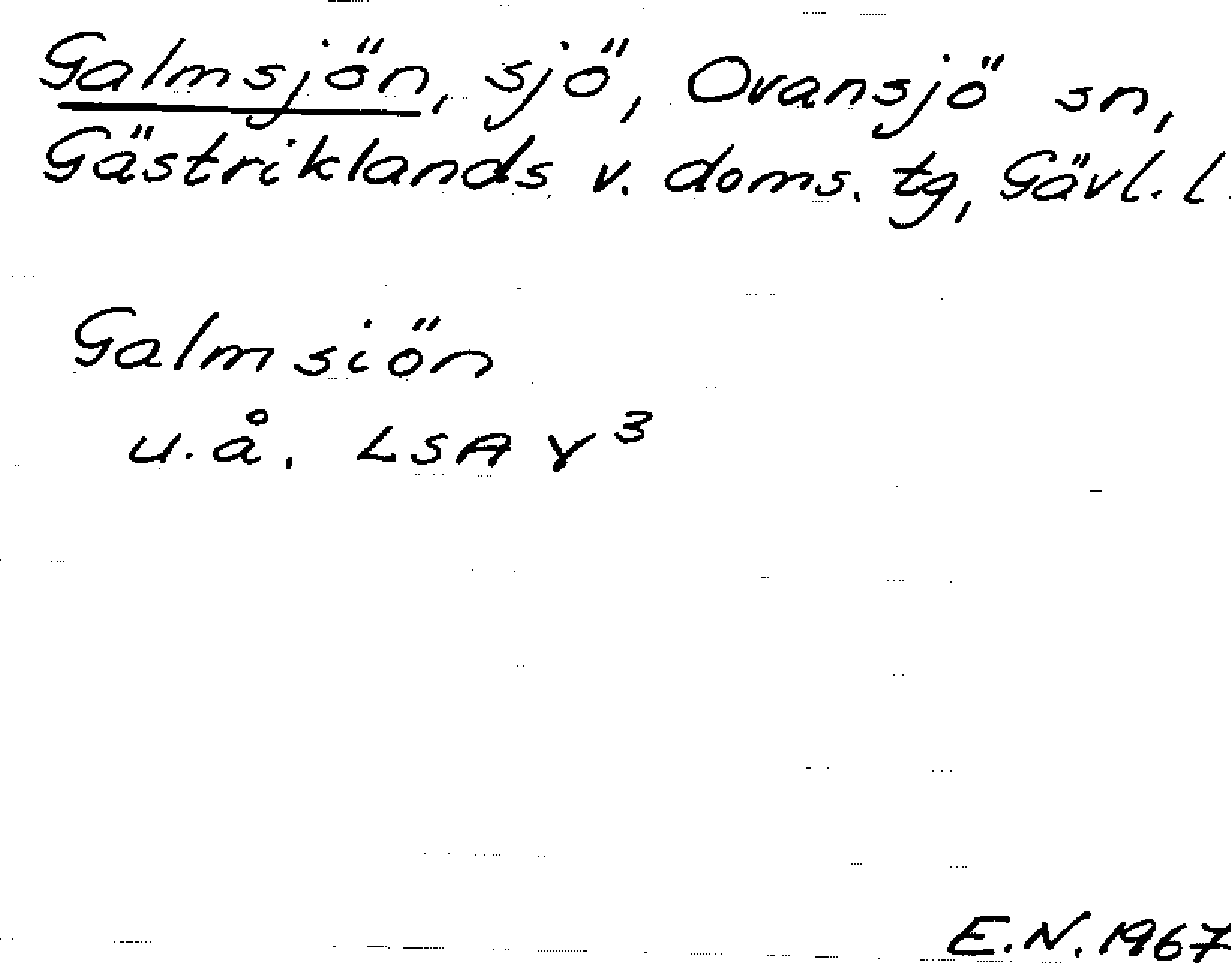 Galmsjön, sjö, Ovansjö sn,
Gästriklands v. doms. tg, Gävl. l.
Galmsiön
u.å. LSA γ³
E.N. 1967